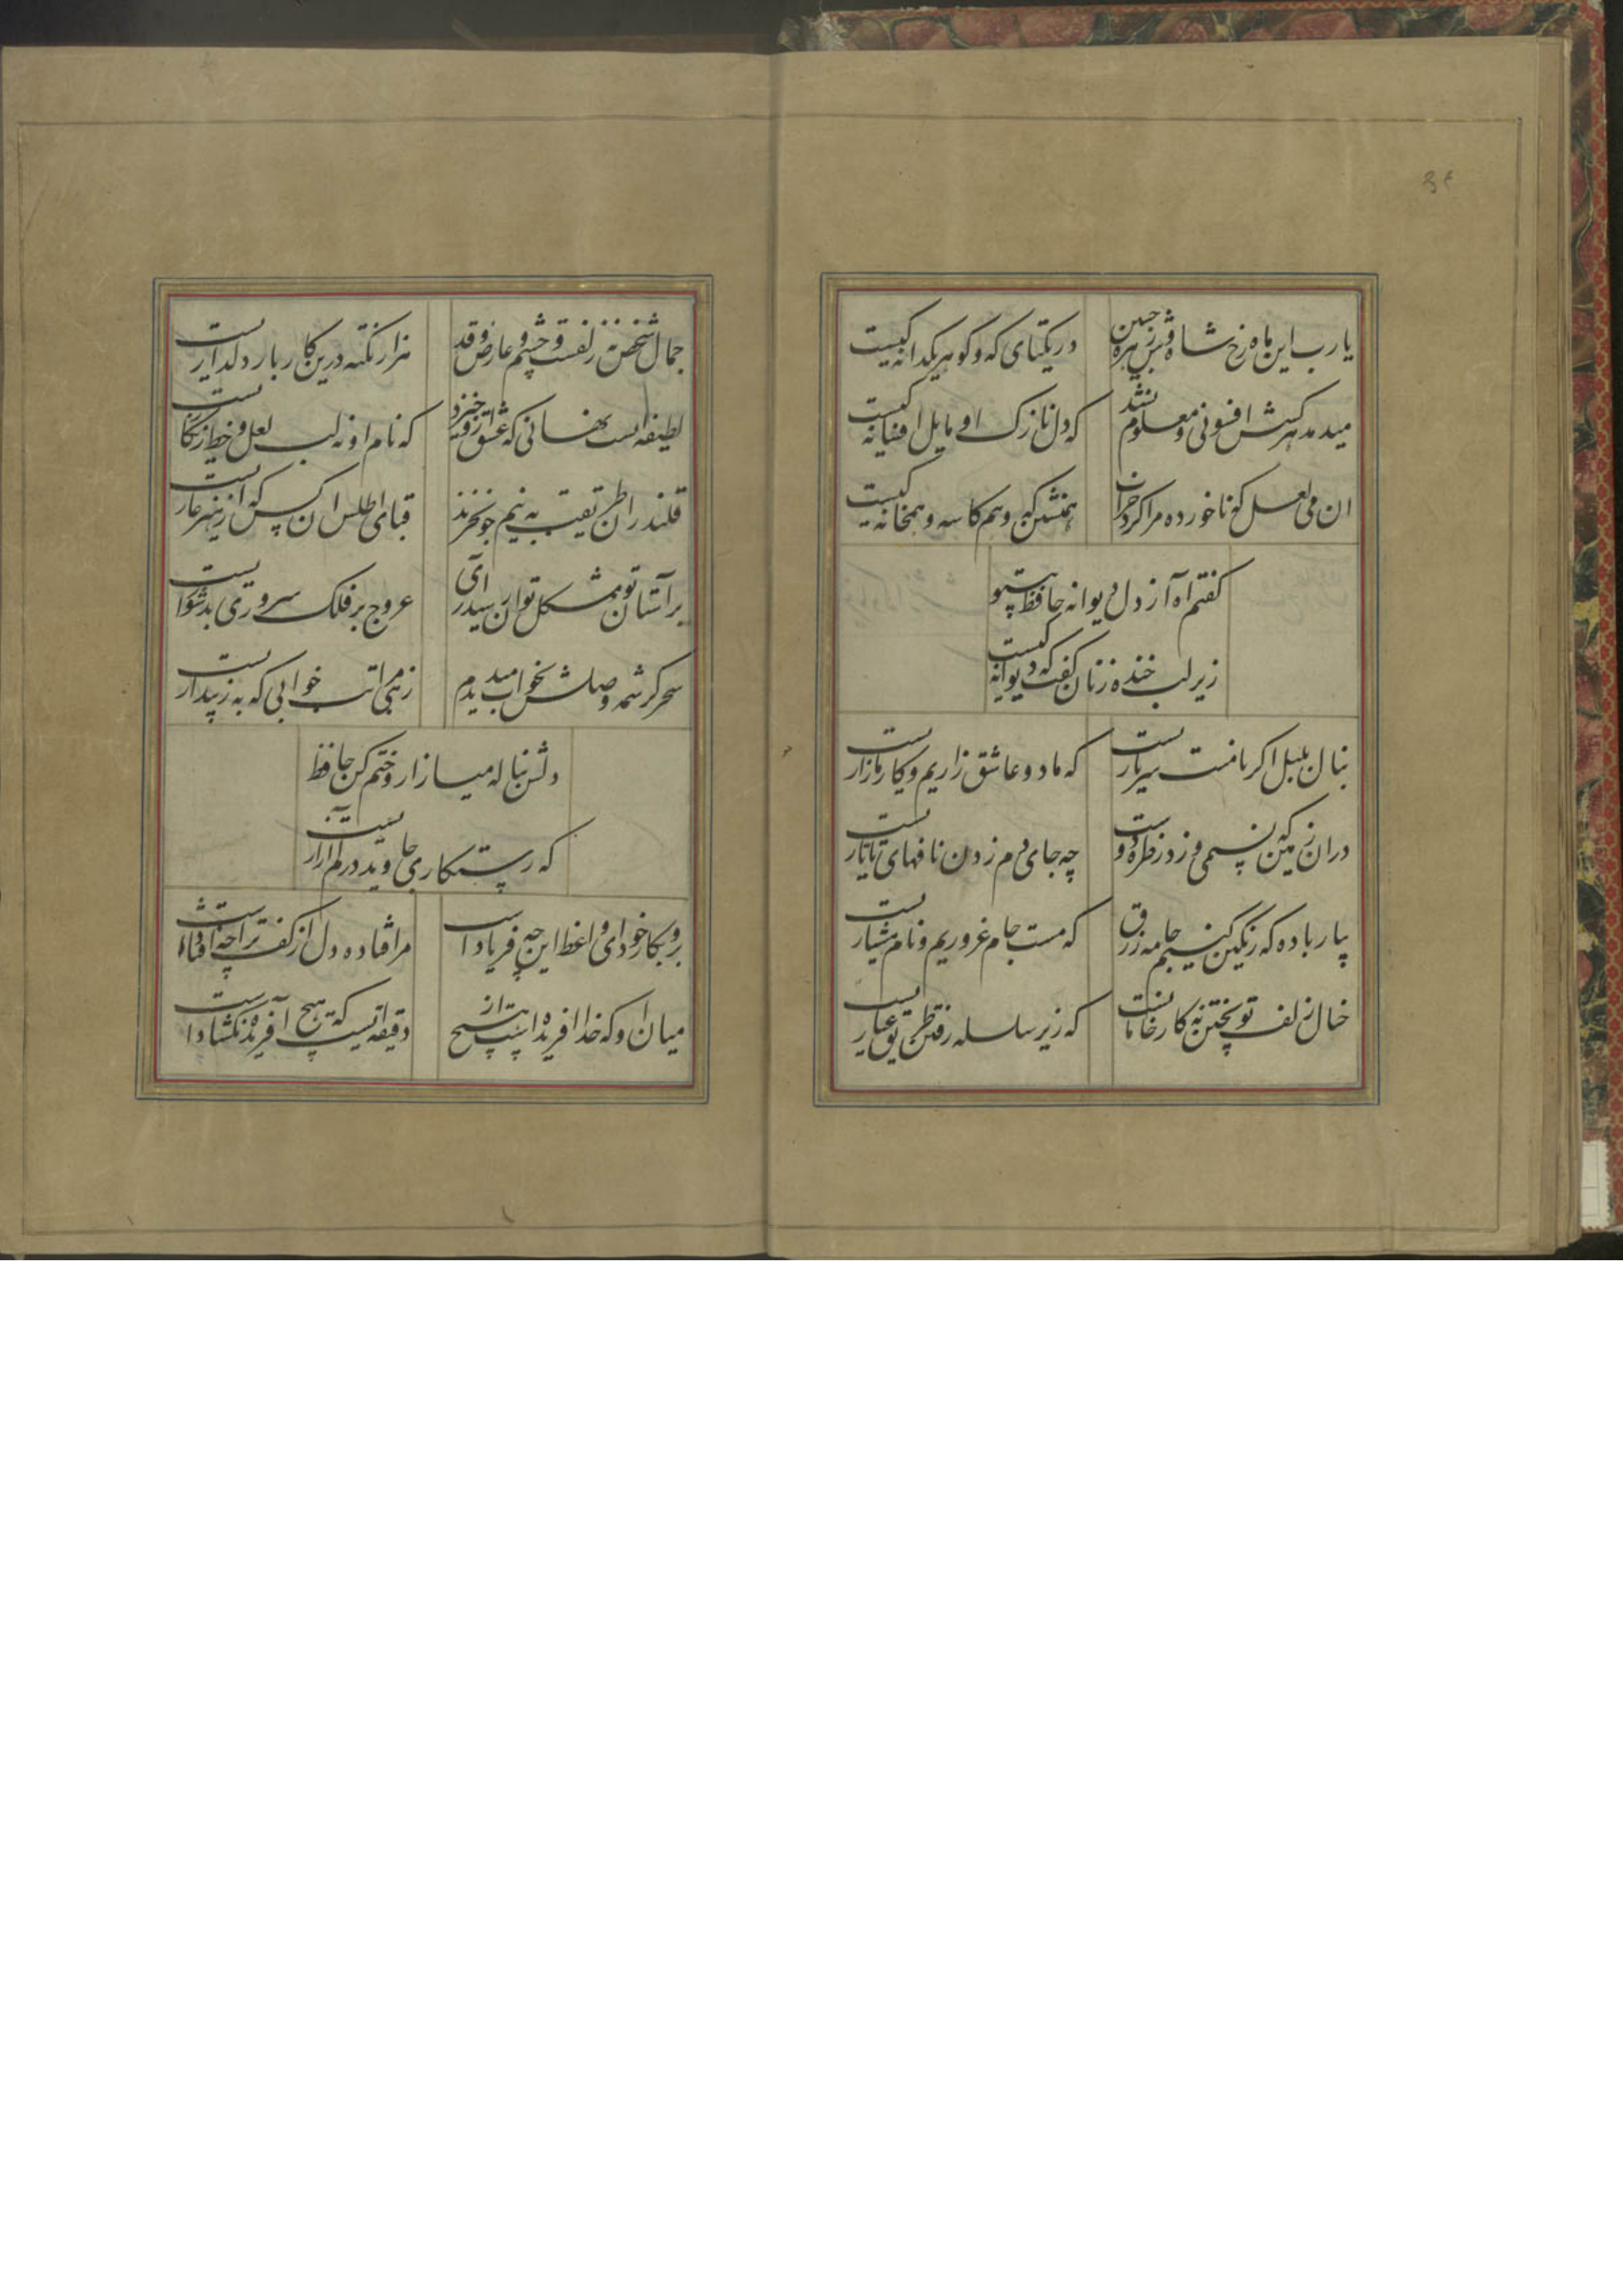 ۳۴
یارب این ماه رخ شاه وش زهره جبین
در یکتای که و گوهر یکدانه کیست
میدمد هر کسش افسونی و معلوم نشد
که دل نازک او مایل افسانه کیست
ان می لعل که ناخورده مرا کرد خراب
همنشین که و هم کاسه و همخانه کیست
کفتم آه از دل دیوانه حافظ بیتو
زیر لب خنده زنان کفت که دیوانه کیست
بنال بلبل اکر بامنت سر یاریست
که ما دو عاشق زاریم و کار ما زاریست
در ان زمین که نسیمی وزد ز طره دوست
چه جای دم زدن نافهای تاتاریست
بیار باده که رنگین کنیم جامه زرق
که مست جام غروریم و نام هشیاریست
خیال زلف تو پختن نه کار خامانست
که زیر سلسله رفتن طریق عیاریست
جمال شخص نه زلفست و چشم و عارض و قد
هزار نکته درین کار بار دلداریست
لطیفه ایست نهانی که عشق ازو خیزد
که نام او نه لب لعل و خط زنگاریست
قلندران طریقت به نیم جو نخرند
قبای اطلس ان کس که از هنر عاریست
بر آستان تو مشکل توان رسید آری
عروج بر فلک سروری بدشواریست
سحر کرشمه وصلش بخواب میدیدم
زهی مراتب خوابی که به ز بیداریست
دلش بناله میازار و ختم کن حافظ
که رستکاری جاوید در کم آزاریست
برو بکار خود ای واعظ این چه فریاد است
مرا فتاده دل از کف ترا چه افتاد است
میان او که خدا افریده است از هیچ
دقیقه ایست که هیچ آفریده نکشاد است